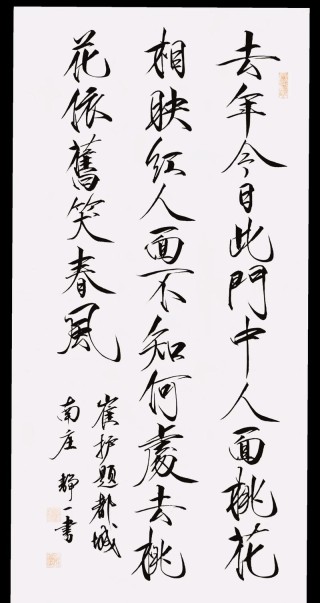 去年今日此門中人面桃花
相映紅人面不知何處去桃
花依舊笑春風
崔护題都城
南庄 靜一書